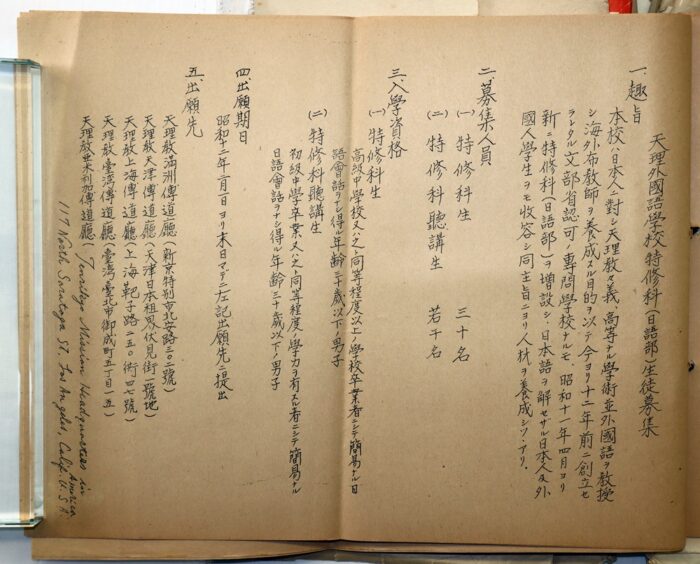 天理外國語學校特修科(日語部)生徒募集
一、趣旨
本校ハ日本人ニ對シ天理教々義、高等ナル學術並外國語ヲ教授
シ海外布教師ヲ養成スル目的ヲ以テ今ヨリ十二年前ニ創立セ
ラレタル文部省認可ノ專門學校ナルモ、昭和十一年四月ヨリ
新ニ特修科(日語部)ヲ增設シ、日本語ヲ解セザル日本人及外
國人學生ヲモ收容シ同主旨ニヨリ人材ヲ養成シツヽアリ、
二、募集人員
(一) 特修科生 三十名
(二) 特修科聽講生 若干名
三、入學資格
(一) 特修科生
高級中學校又ハ之ト同等程度以上ノ學校卒業者ニシテ簡易ナル日
語會話ヲナシ得ル年齡三十歲以下ノ男子
(二) 特修科聽講生
初級中學卒業又ハ之ト同等程度ノ學力ヲ有スル者ニシテ簡易ナル
日語會話ヲナシ得ル年齡三十歲以下ノ男子
四、出願期日
昭和十二年二月一日ヨリ末日マデニ左記出願先ニ提出
五、出願先
天理教滿洲傳道廳(新京特別市北安路三〇二號)
天理教天津傳道廳(天津日本租界伏見街一號地)
天理教上海傳道廳(上海靶子路二五〇衖四七號)
天理教臺灣傳道廳(臺灣臺北市御成町五丁目一五)
天理教亞米利加傳道廳(Tenrikyo Mission Headquarters in America
117 North Saratoga St. Los Angeles, Calif. U.S.A.